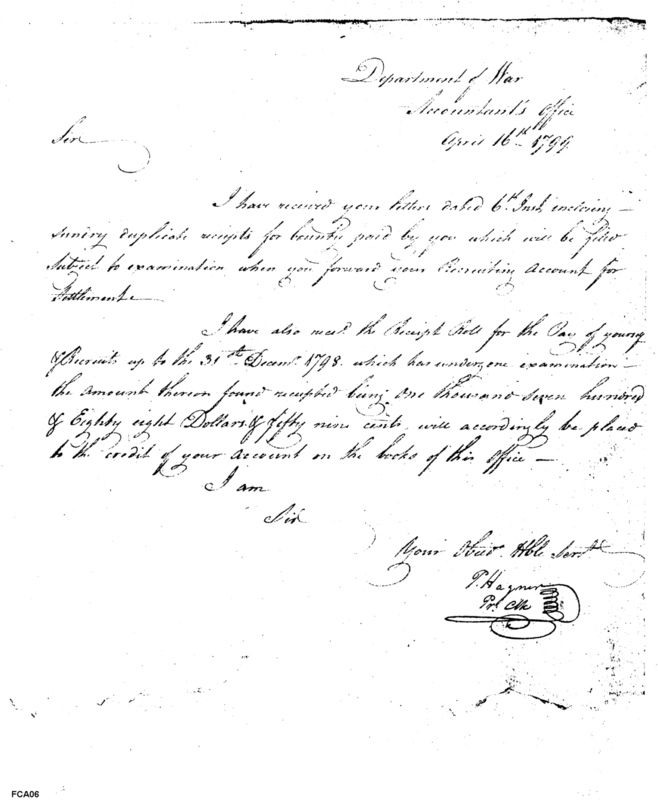 Department of War
Accountant's Office
April 16th 1799
Sir
I have received your letters dated 6th Inst, inclosing
sundry duplicate receipts for bounty paid by you which will be filed
subject to examination when you forward your Recruiting Account for
Settlement
I have also recd. the Receipt Roll for the Pay of
& Recruits up to the 31st Decemr. 1798. which has undergone examination
the amount thereon found receipted being One thousand seven hundred
& Eighty eight Dollars & fifty nine cents, will accordingly be placed
to the credit of your Account on the books of this office
I am
Sir
Your Obed. Hble Servt
P. Hagner
Pr. Clk
FCA06